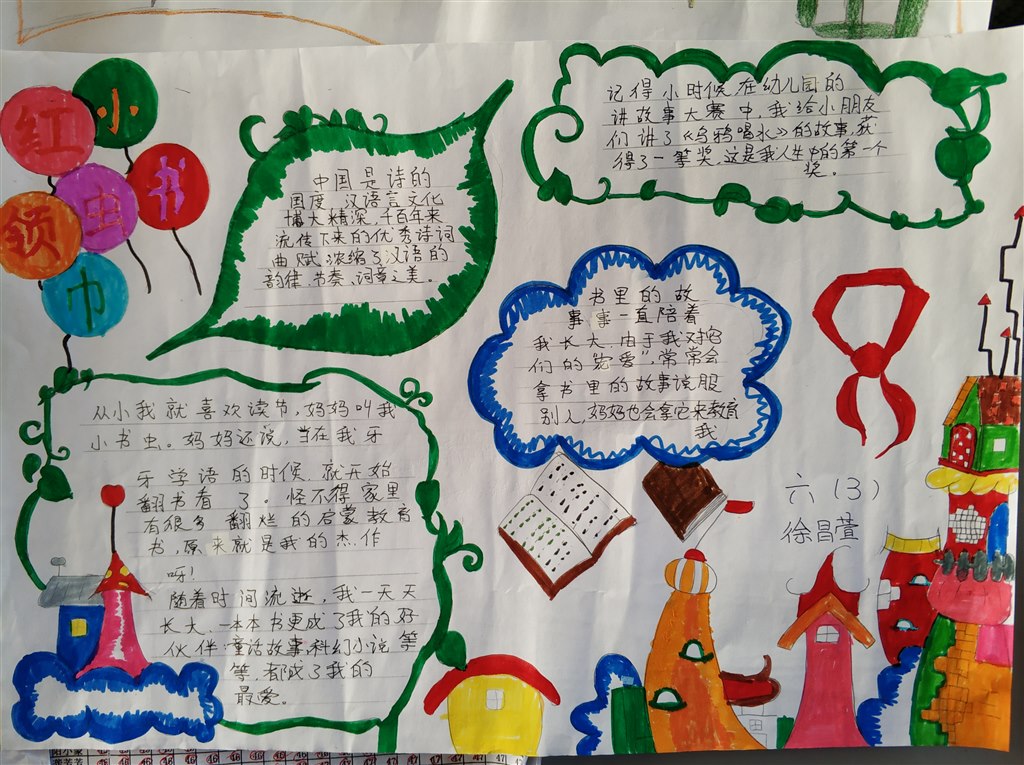 小
红
书
虫
领
巾
中国是诗的
国度,汉语言文化
博大精深,千百年来
流传下来的优秀诗词
曲赋,浓缩了汉语的
韵律、节奏、词章之美。
记得小时候,在幼儿园的
讲故事大赛中,我给小朋友
们讲了《乌鸦喝水》的故事,获
得了一等奖,这是我人生中的第一个
奖。
书里的故
事事一直陪着
我长大,由于我对它
们的“宠爱”,常常会
拿书里的故事说服
别人,妈妈也会拿它来教育
我
从小我就喜欢读节,妈妈叫我
小书虫。妈妈还说,当在我牙
牙学语的时候,就开始
翻书看了。怪不得家里
有很多翻烂的启蒙教育
书,原来就是我的杰作
呀!
随着时间流逝,我一天天
长大,一本本书更成了我的好
伙伴,童话故事,科幻小说等
等,都成了我的
最爱。
六(3)
徐昌萱